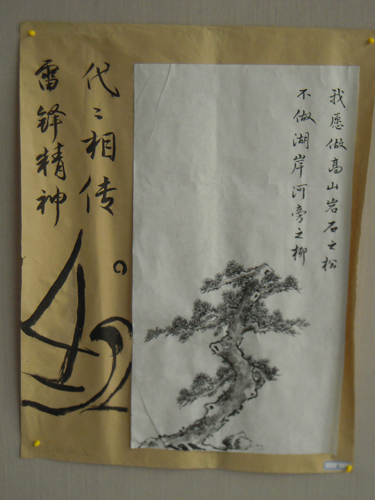 我愿做高山岩石之松
不做湖岸河旁之柳
代〻相传
雷锋精神